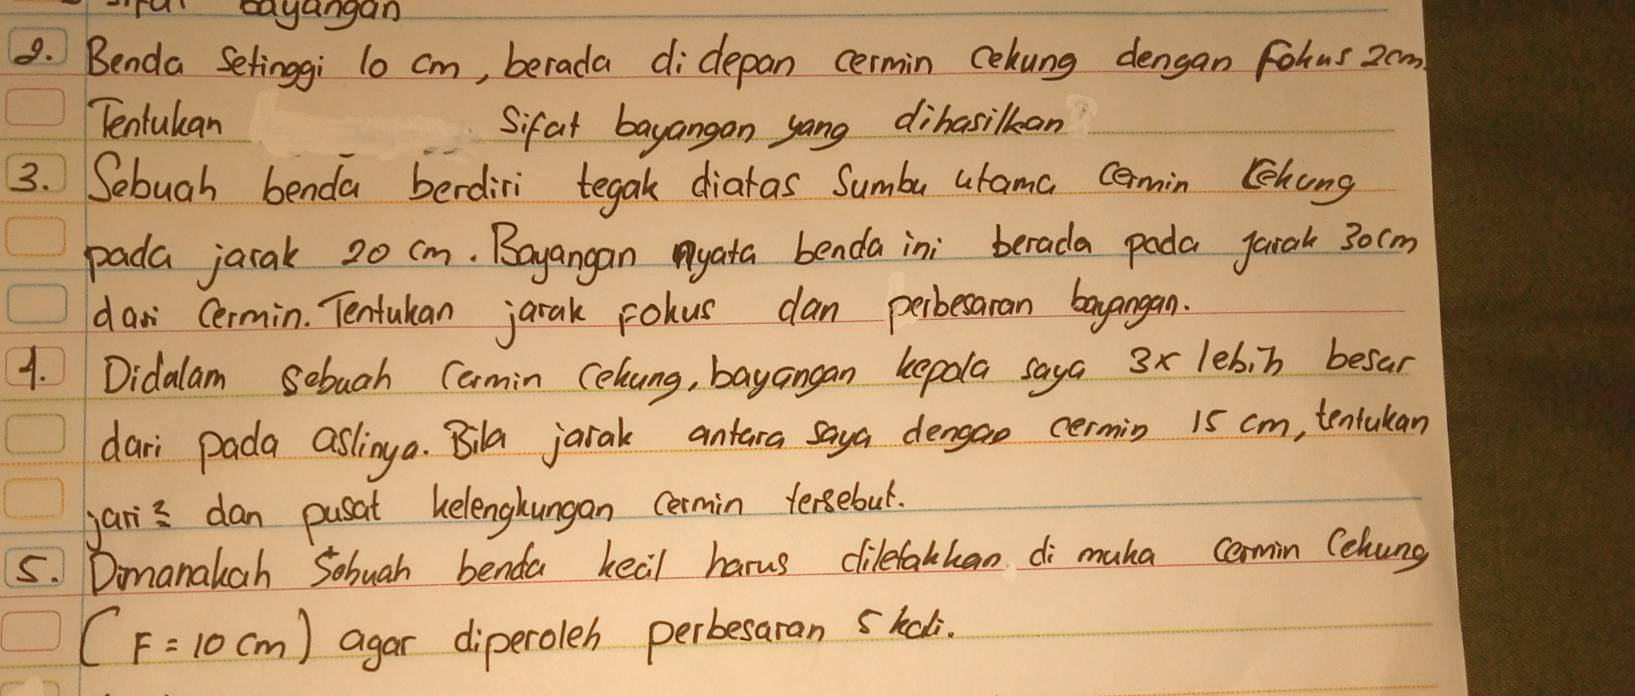 sifat bayangan
2. Benda setinggi 10 cm, berada di depan cermin cekung dengan fokus 2cm.
Tentukan sifat bayangan yang dihasilkan
3. Sebuah benda berdiri tegak diatas sumbu utama cermin cekung
pada jarak 20 cm. Bayangan nyata benda ini berada pada jarak 30cm
dari cermin. Tentukan jarak fokus dan perbesaran bayangan.
4. Didalam sebuah cermin cekung, bayangan kepala saya 3x lebih besar
dari pada aslinya. Bila jarak antara saya dengan cermin 15 cm, tentukan
jari² dan pusat kelengkungan cermin tersebut.
5. Dimanakah sebuah benda kecil harus diletakkan di muka cermin cekung
(F = 10 cm) agar diperoleh perbesaran 5 kali.